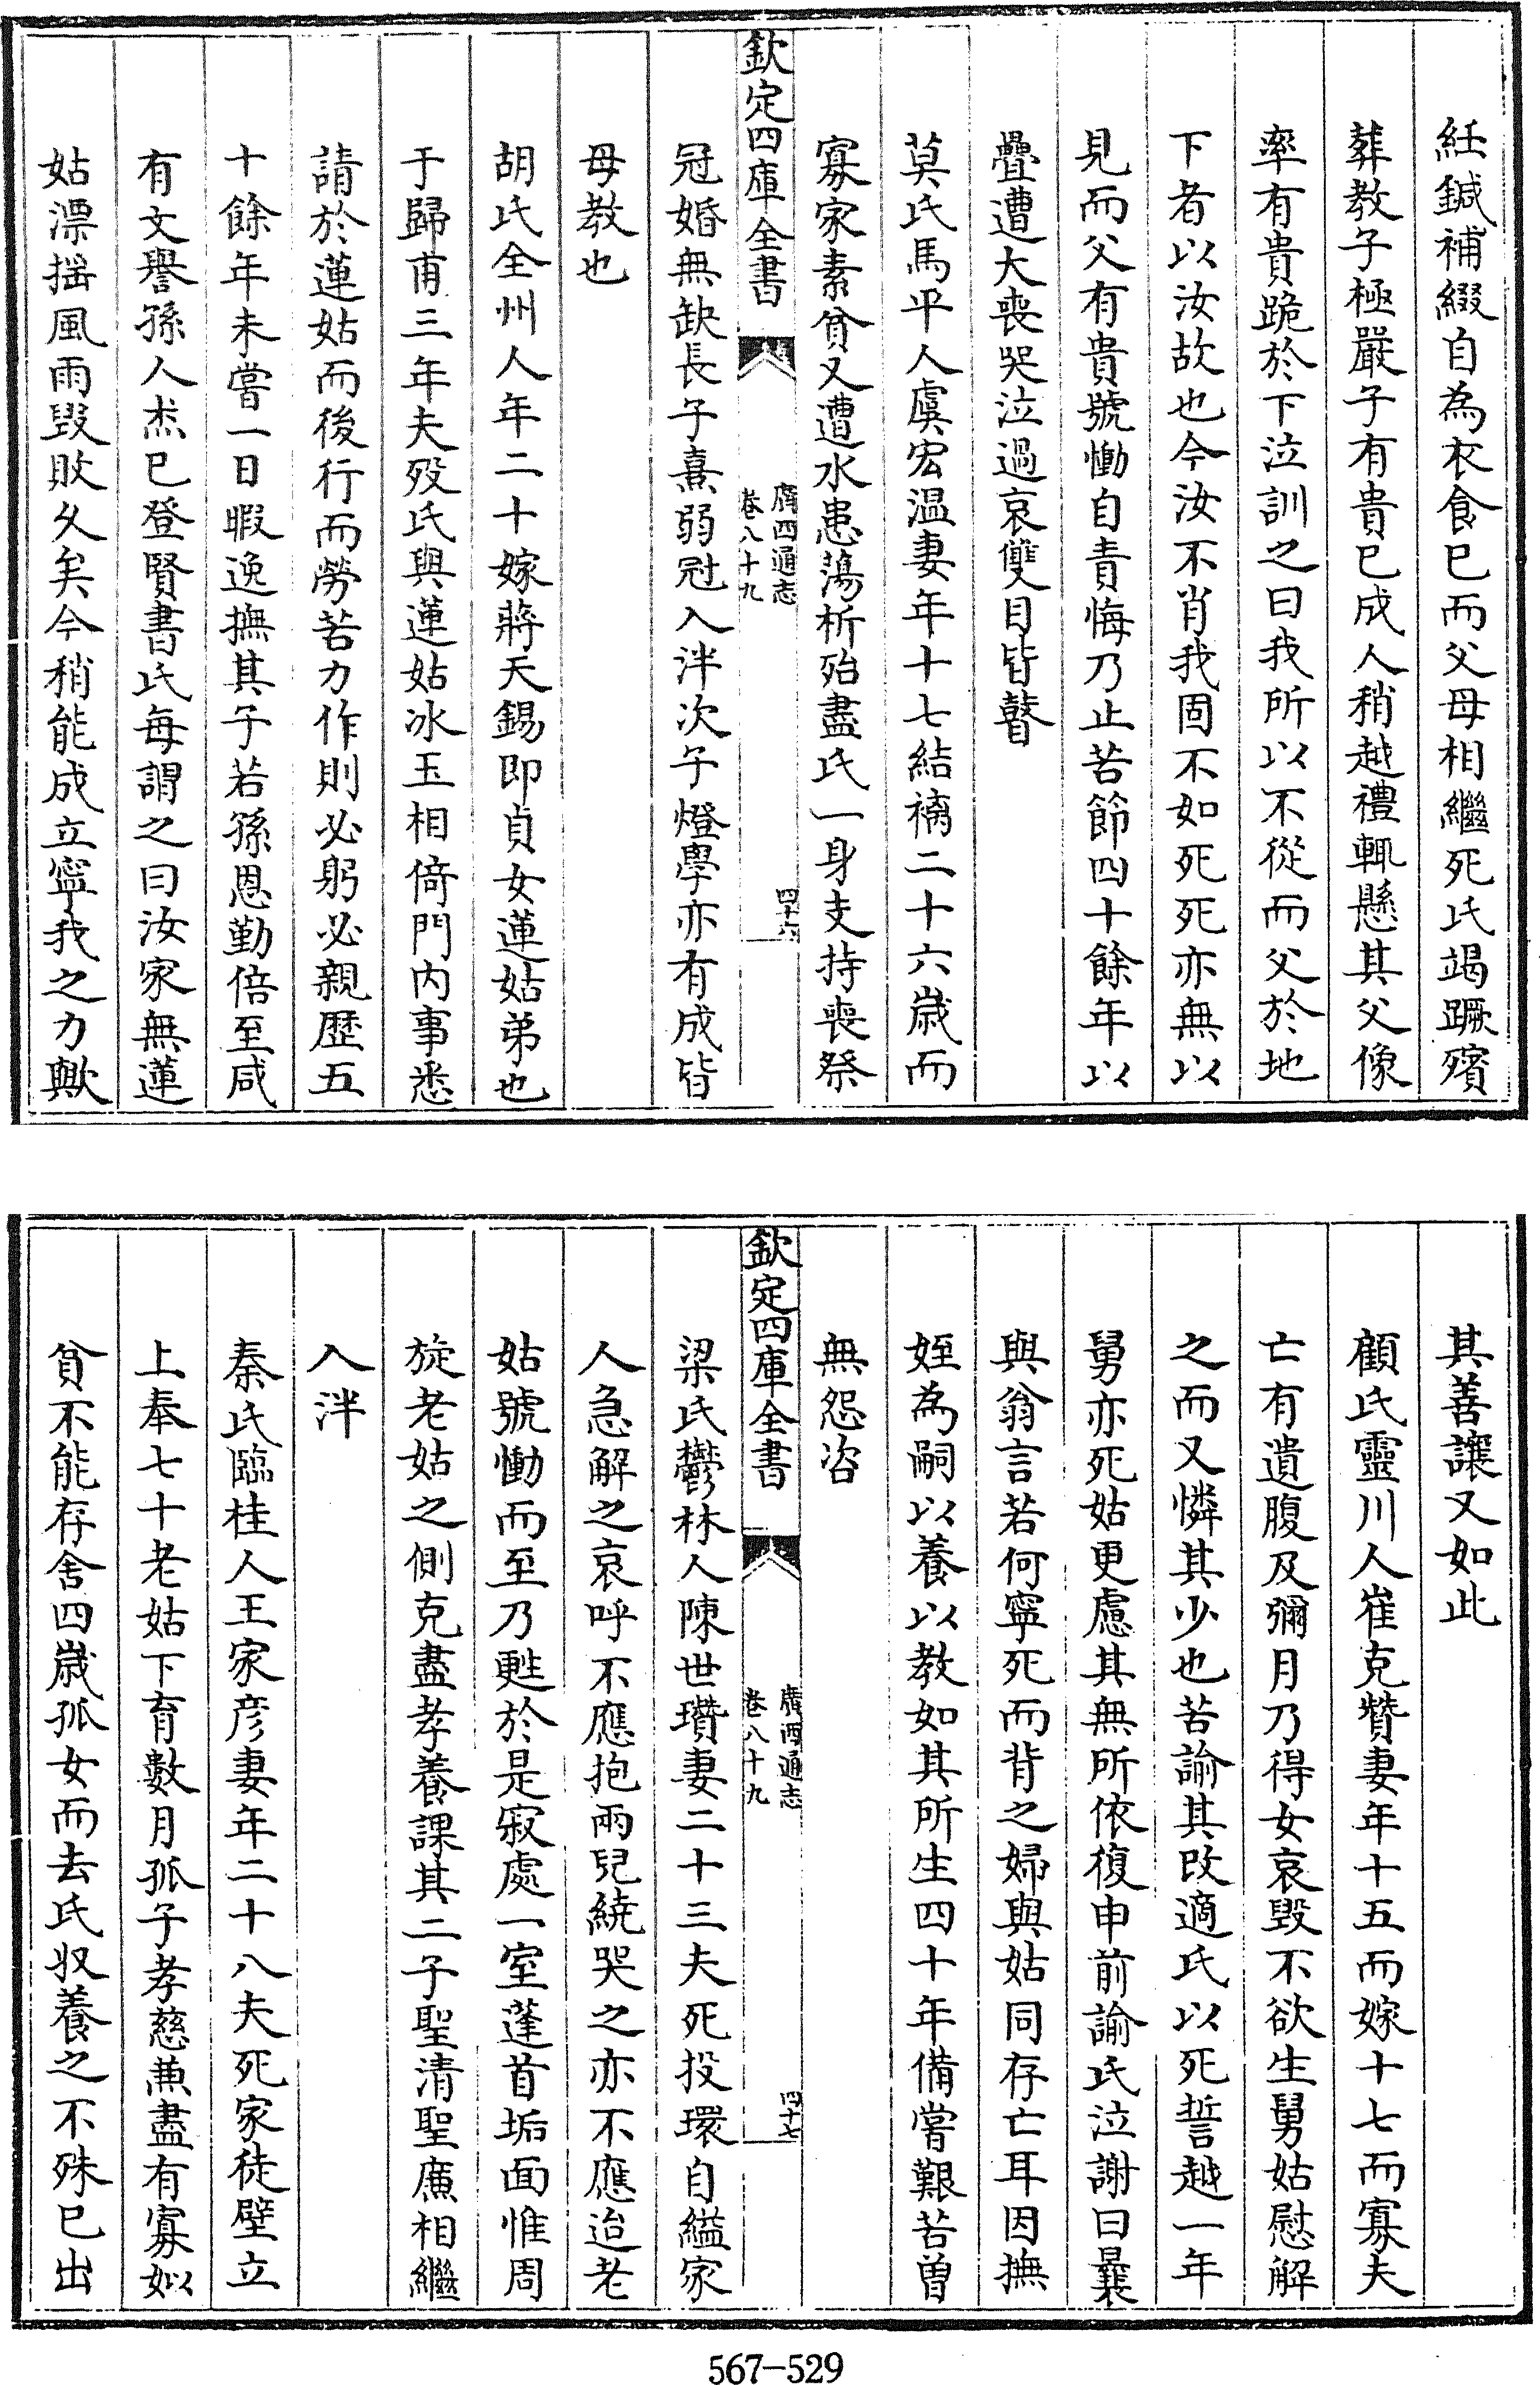 紝鍼補綴自為衣食巳而父母相繼死氏竭蹶殯
葬教子極嚴子有貴巳成人稍越禮輒懸其父像
率有貴跪於下泣訓之曰我所以不從而父於地
下者以汝故也今汝不肖我固不如死死亦無以
見而父有貴號慟自責悔乃止苦節四十餘年以
疊遭大喪哭泣過哀雙目皆瞽
莫氏馬平人虞宏温妻年十七結褵二十六嵗而
寡家素貧又遭水患蕩析殆盡氏一身支持喪祭
欽定四庫全書
廣西通志
卷八十九
四十六
冠婚無缺長子熹弱冠入泮次子燈學亦有成皆
母教也
胡氏全州人年二十嫁蔣天錫即貞女蓮姑弟也
于歸甫三年夫殁氏與蓮姑冰玉相倚門内事悉
請於蓮姑而後行而勞苦力作則必躬必親歴五
十餘年未嘗一日暇逸撫其子若孫恩勤倍至咸
有文譽孫人杰巳登賢書氏每謂之曰汝家無蓮
姑漂揺風雨毁敗久矣今稍能成立寧我之力歟
其善讓又如此
顧氏靈川人崔克贊妻年十五而嫁十七而寡夫
亡有遺腹及彌月乃得女哀毁不欲生舅姑慰解
之而又憐其少也苦諭其改適氏以死誓越一年
舅亦死姑更慮其無所依復申前諭氏泣謝曰曩
與翁言若何寧死而背之婦與姑同存亡耳因撫
姪為嗣以養以教如其所生四十年備嘗艱苦曾
無怨咨
欽定四庫全書
廣西通志
卷八十九
四十七
梁氏鬱林人陳世瓚妻二十三夫死投環自縊家
人急解之哀呼不應抱兩兒繞哭之亦不應迨老
姑號慟而至乃甦於是寂處一室蓬首垢面惟周
旋老姑之側克盡孝養課其二子聖清聖廉相繼
入泮
秦氏臨桂人王家彦妻年二十八夫死家徒壁立
上奉七十老姑下育數月孤子孝慈兼盡有寡姒
貧不能存舍四嵗孤女而去氏收養之不殊巳出
567-529